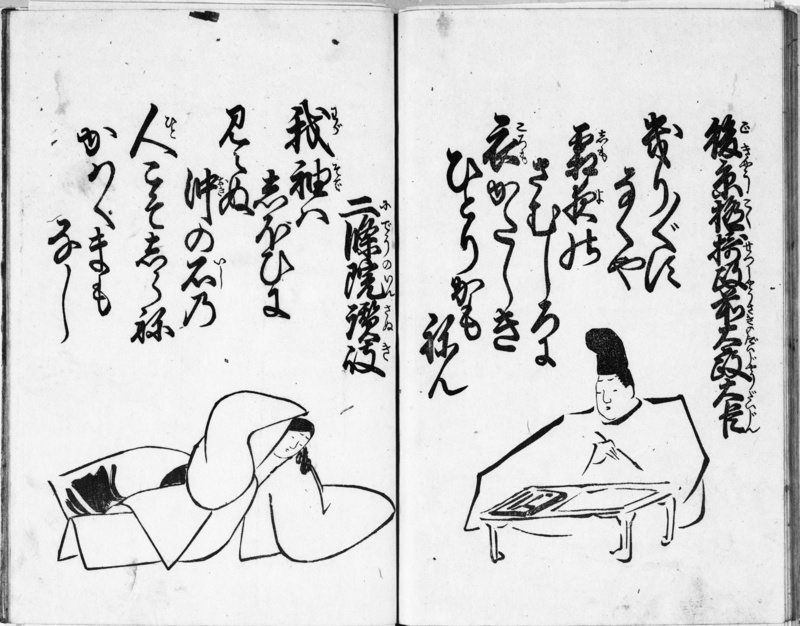 後京極摂政前大政大臣
きり〲す
なくや
霜夜の
さむしろに
衣かたしき
ひとりかも
ねん
二條院讃岐
我袖は
しほひに
見えぬ
沖の石の
人こそしらね
かはくまも
なし